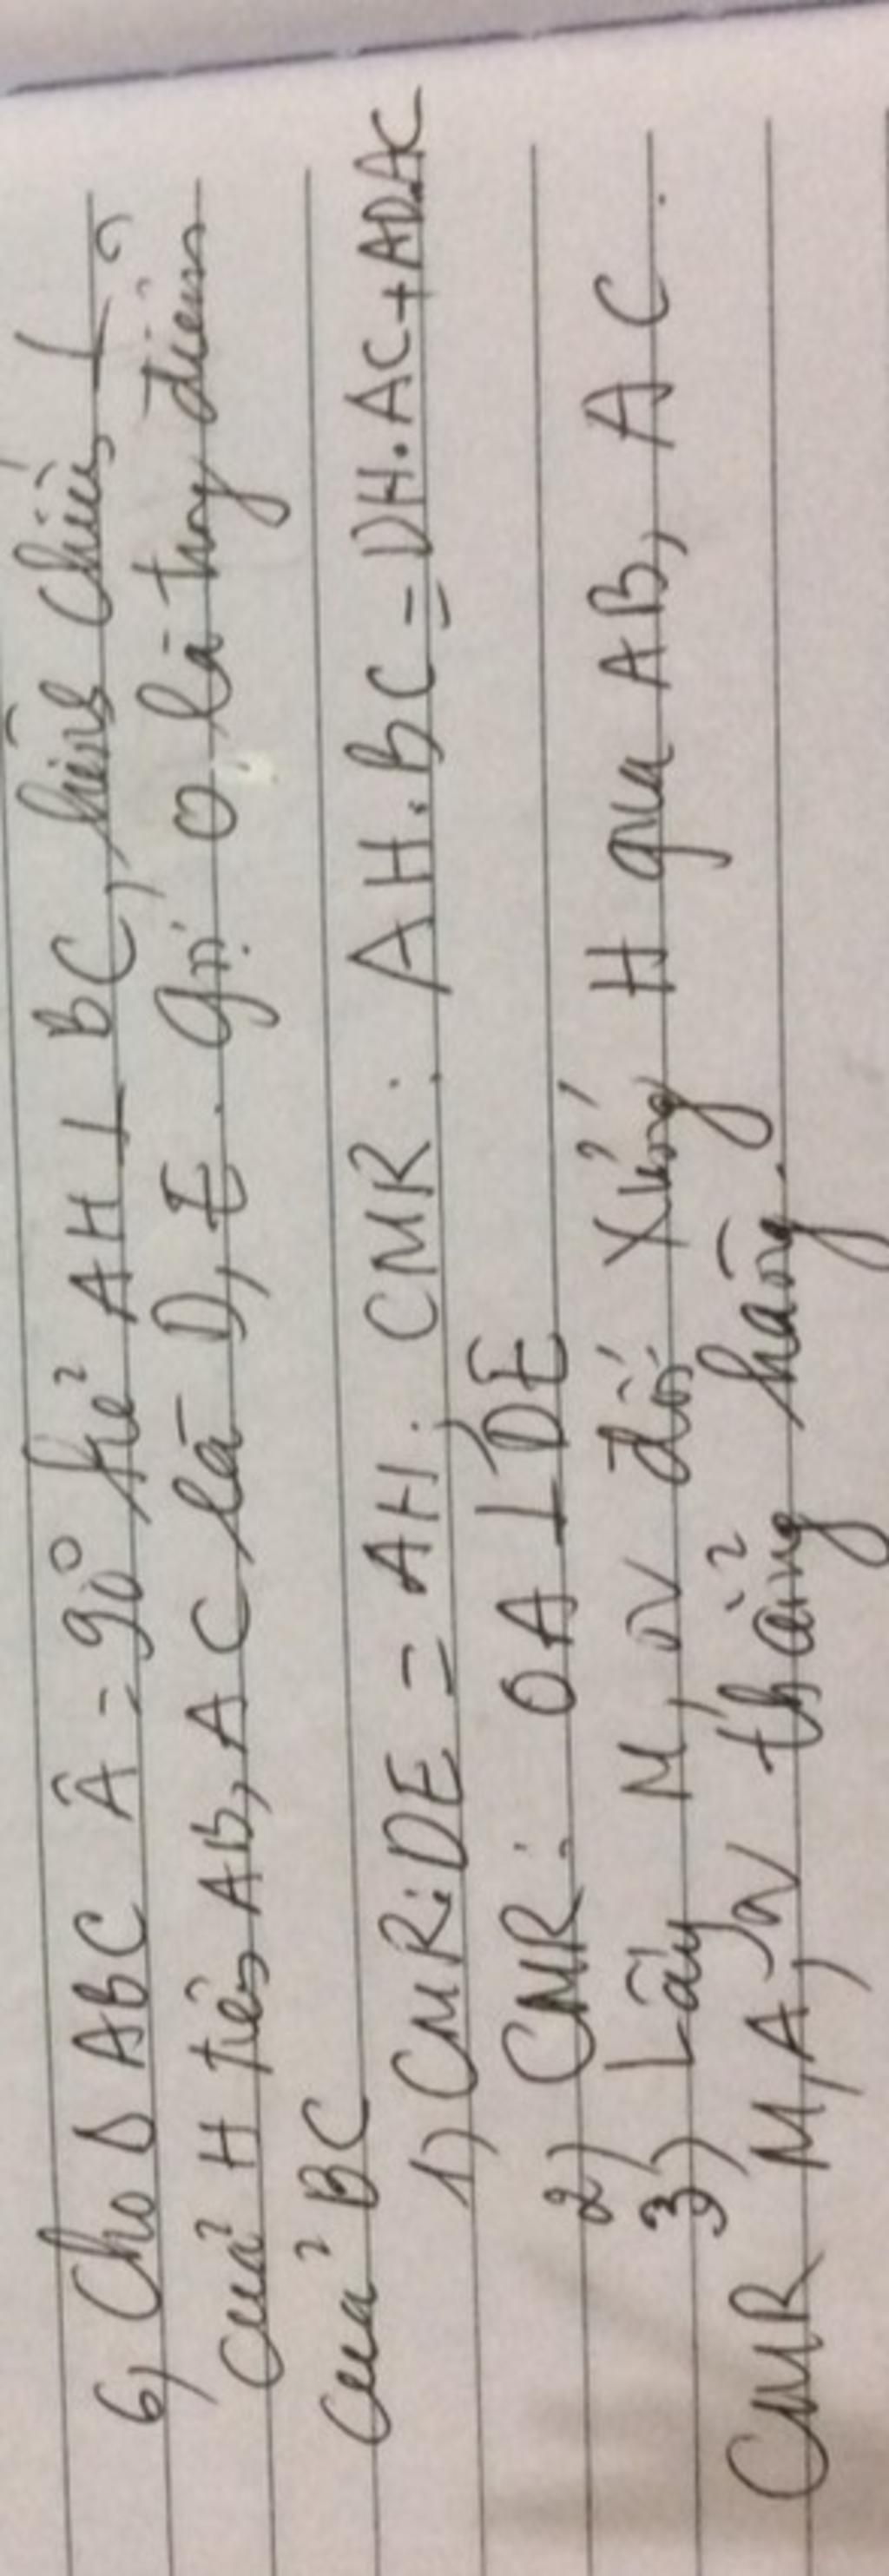 6, Cho Δ ABC Â = 90° kẻ AH ⊥ BC, hình chiếu ⊥
của H trên AB, AC là D, E. Gọi O là trung điểm
của BC
1) CMR: DE = AH. CMR: AH.BC = DH.AC + AD.AC
2) CMR: OA ⊥ DE
3) Lấy M, N đối xứng H qua AB, AC.
CMR M, A, N thẳng hàng.